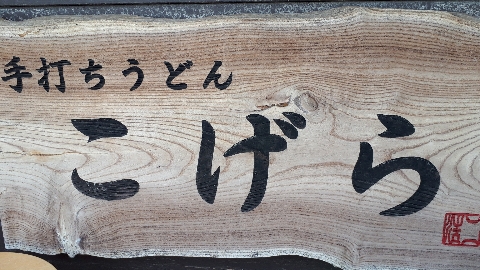 手打ちうどん
こげら